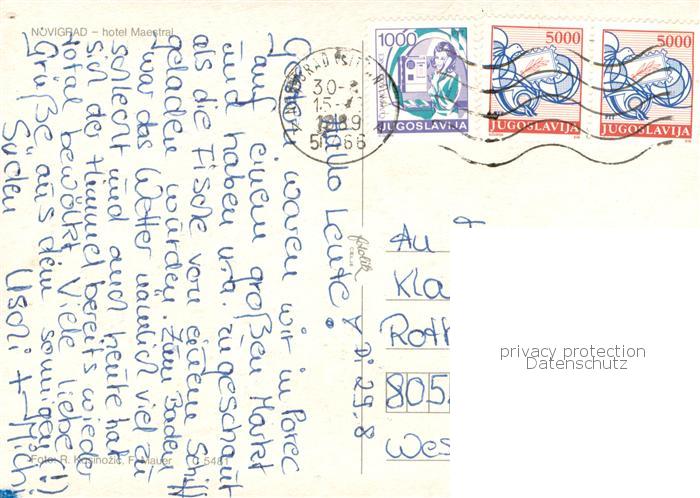 NOVIGRAD – hotel Maestral
1000
JUGOSLAVIJA
5000
JUGOSLAVIJA
5000
JUGOSLAVIJA
30
15
1989
Di 29.8
Hallo Leute!
Gestern waren wir in Porec
auf einem großen Markt
und haben u.a. zugeschaut
als die Fische von einem Schiff
geladen wurden. Zum Baden
war das Wetter nämlich viel zu
schlecht und auch heute hat
sich der Himmel bereits wieder
total bewölkt. Viele liebe
Grüße aus dem sonnigen (!!)
Süden Uschi + Michi
fotolik
CELJE
An
Kla
Roth
805
Wes
privacy protection
Datenschutz
Foto: R. Kosinožic, F. Mauer C 5481